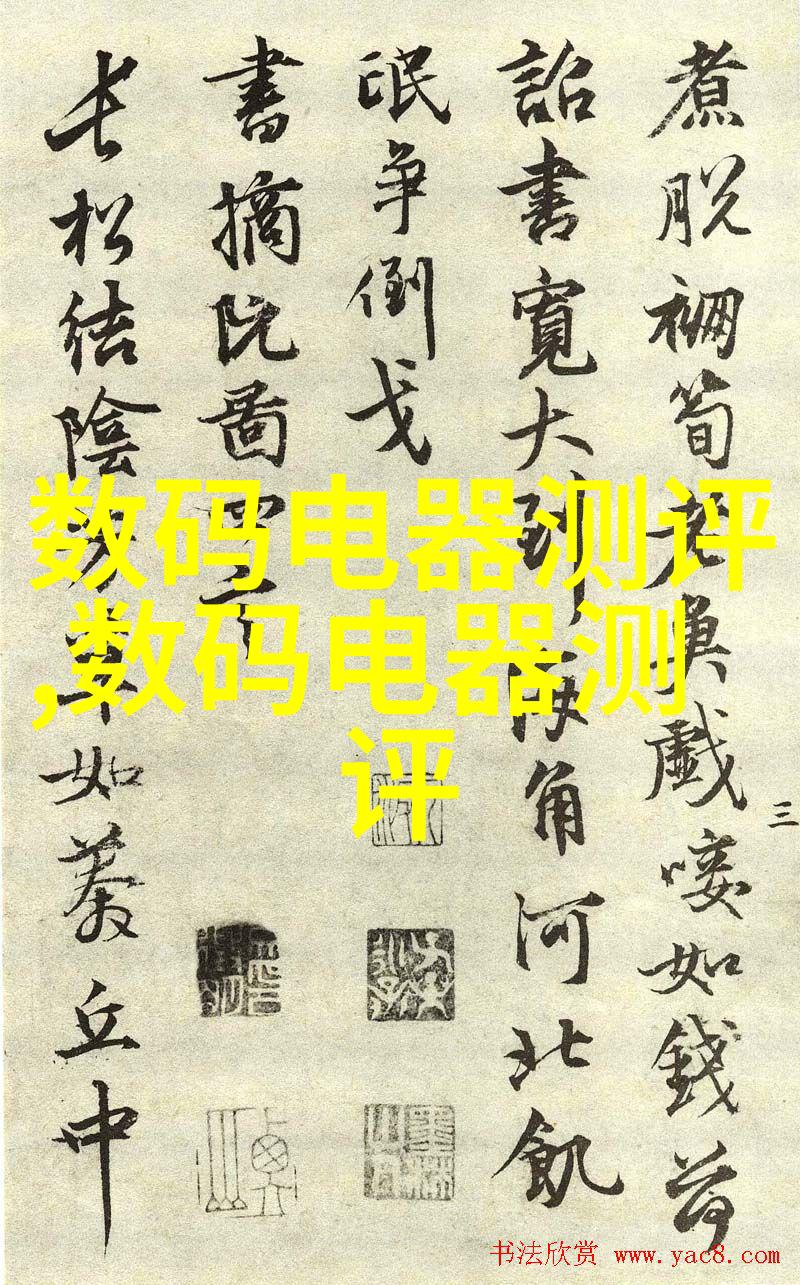 煮脱筍老莫戲唼如錢荷
詔書寬大到海角河北飢
氓争倒戈
書摘阮圖
長松結陰平如丘中
三
数码电器测评
,数码电器测
评
书法欣赏 www.yac8.com